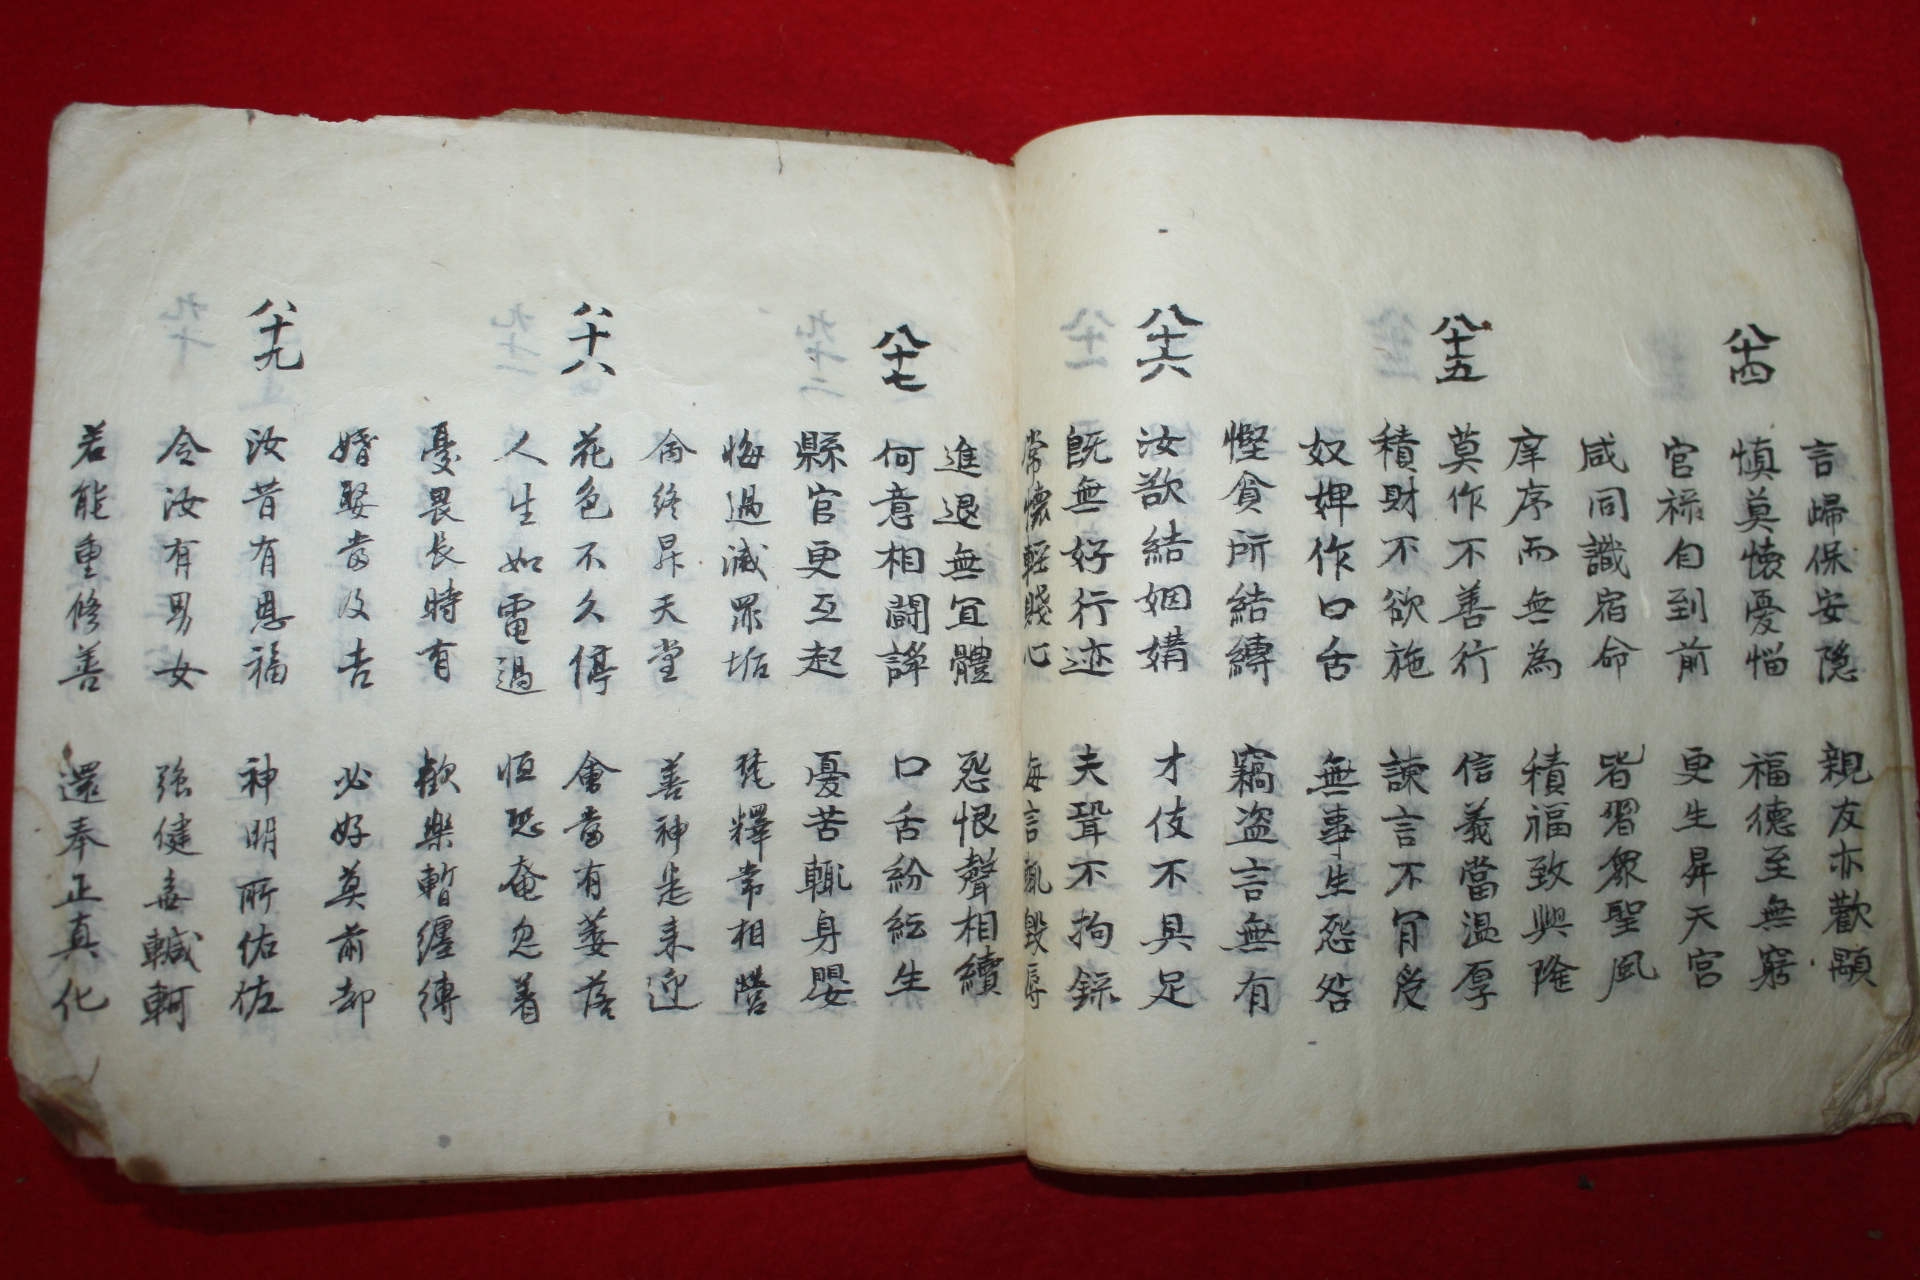 言歸保安隱 親友亦歡顯
八十四 慎莫懷憂惱 福德至無窮
官祿自到前 更生昇天宮
咸同識宿命 皆習眾聖風
庠序而無為 積福致興隆
八十五 莫作不善行 信義當溫厚
積財不欲施 諫言不肯受
奴婢作口舌 無事生怨咎
慳貪所結縛 竊盜言無有
八十六 汝欲結姻媾 才伎不具足
既無好行迹 夫聟不拘錄
常懷輕賤心 每言輒毀辱
進退無宜體 怨恨聲相續
八十七 何意相鬪諍 口舌紛紜生
縣官更互起 憂苦輙身嬰
悔過滅罪垢 梵釋常相營
命終昇天堂 善神悉來迎
八十八 花色不久停 會當有萎落
人生如電過 恒恐奄忽著
憂畏長時有 歡樂暫纏縛
婚娶當及吉 必好莫前却
八十九 汝昔有恩福 神明所佑佐
令汝有男女 強健無轗軻
若能重修善 還奉正真化